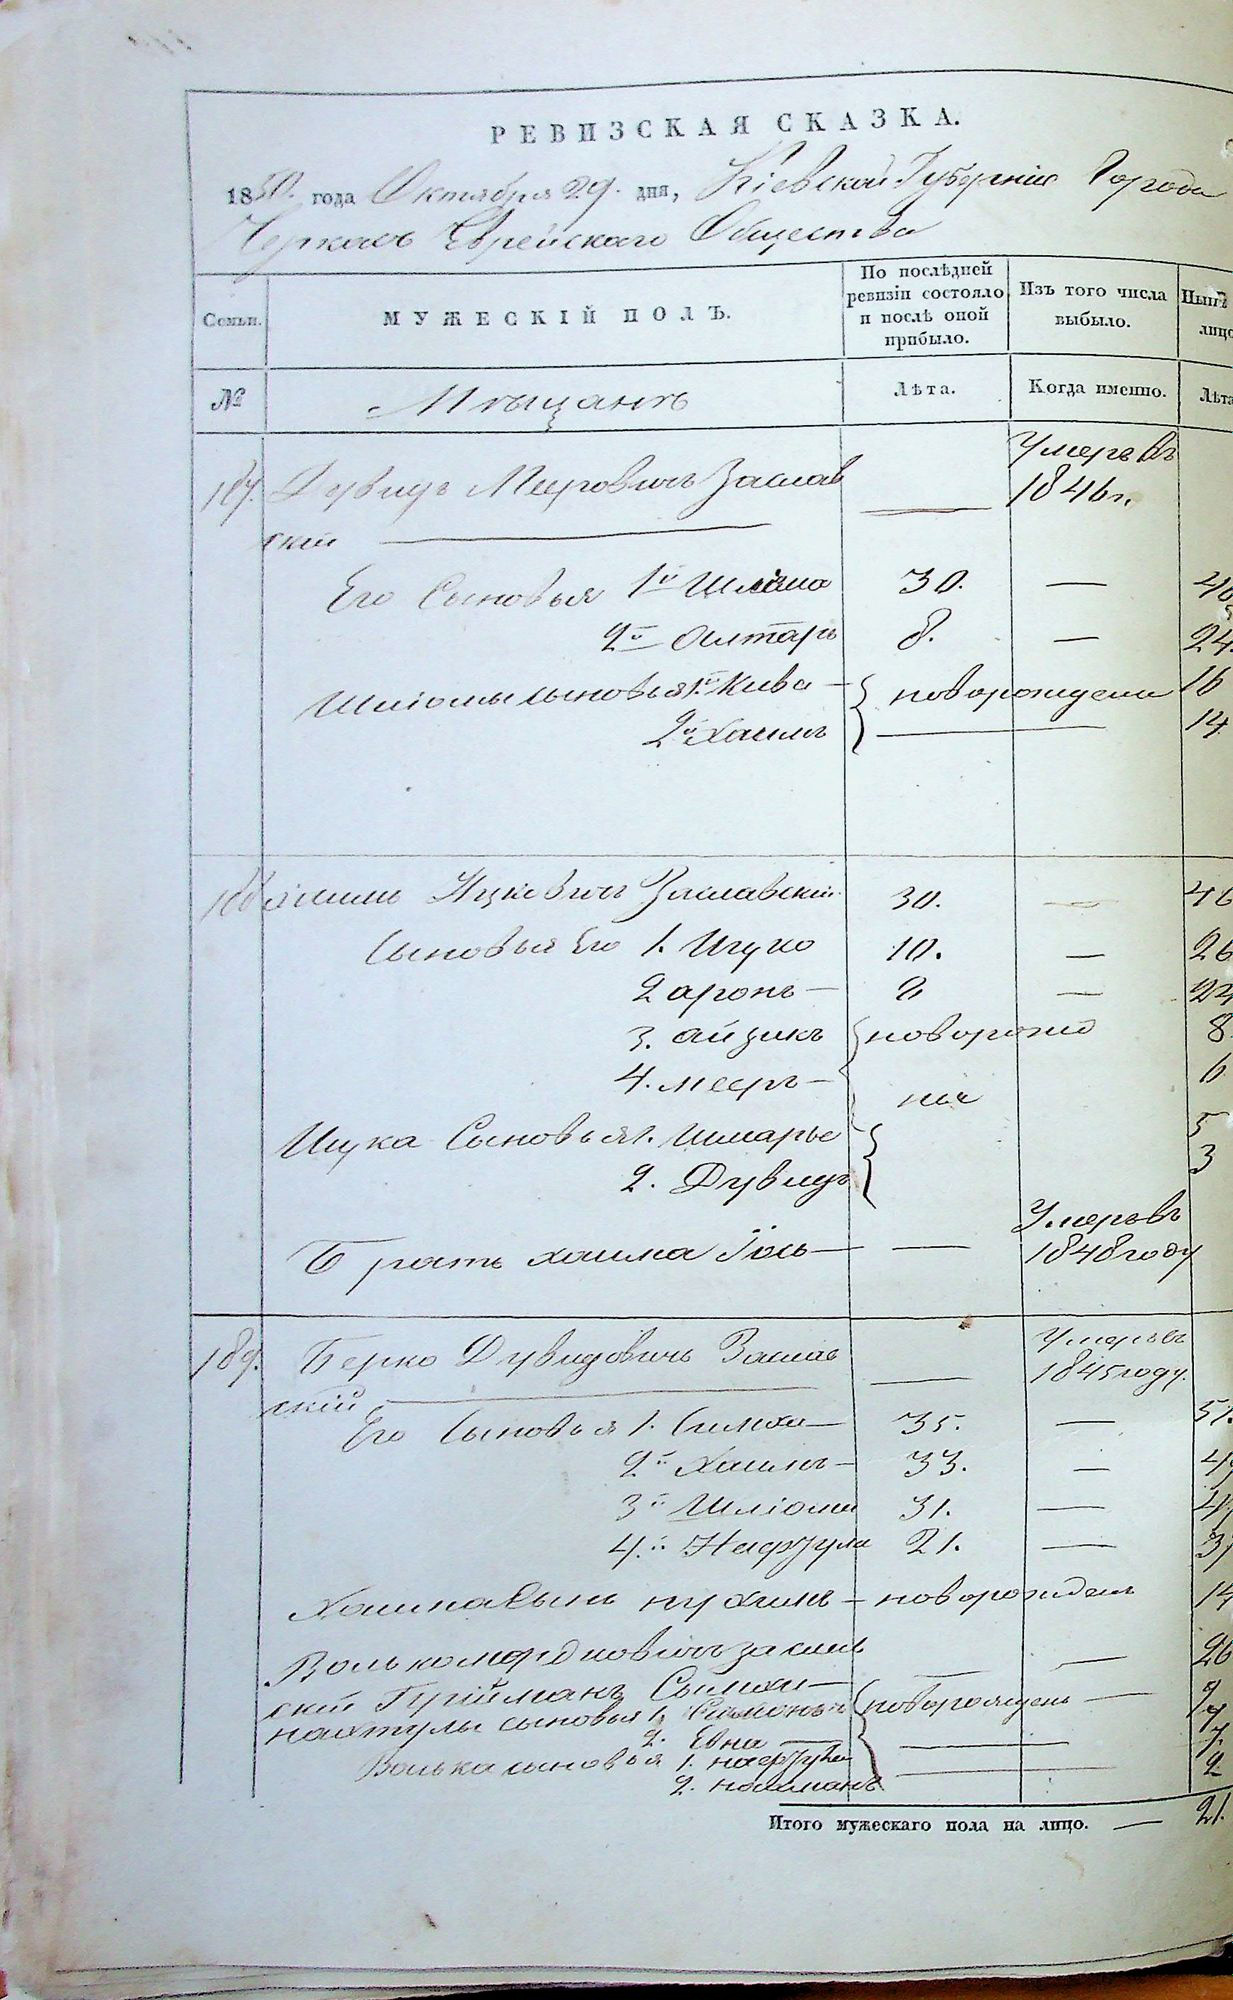 РЕВИЗСКАЯ СКАЗКА.
1850. года Октября 29. дня, Кіевской Губерніи Города
Черкасъ Еврейскаго Общества
Семьи.
МУЖЕСКІЙ ПОЛЪ.
По послѣдней ревизіи состояло и послѣ оной прибыло.
Изъ того числа выбыло.
Нынѣ лицо
№
Мѣщанъ
Лѣта.
Когда именно.
Лѣта
187. Дувидъ Мееровичъ Заслав
скій
Умеръ въ
1846 г.
Его Сыновья 1й Шліома 30. — 40
2й Алтаръ 8. — 24.
Шліомы сыновья 1й Кива — новорождены 16
2й Хаимъ 14
188 Хаимъ Ицковичъ Заславскій 30. — 46
Сыновья Его 1. Ицко 10. — 26
2 аронъ — 8 — 24
3. айзикъ новорожд 8
4. мееръ — ніе 6
Ицка Сыновья 1. Шмарье 5
2. Дувидъ 3
Умеръ въ
Братъ хаима Іось — — 1848 году
189. Берко Дувидовичъ Заслав
скій
Умеръ въ
1845 году.
Его Сыновья 1. Симха — 35. — 51.
2й Хаимъ — 33. —
3й Шліома 31. —
4й Нафтула 21. —
Хаима Сынъ нухимъ — новорожденъ 14
Волько мордковичъ заслав — — 26
скій
нафтулы сыновья 1. Симонъ новорожденъ —
2. Евна — 7.
Волька сыновья 1. нафтула 2
2. нахманъ
Итого мужескаго пола на лицо. — 21.